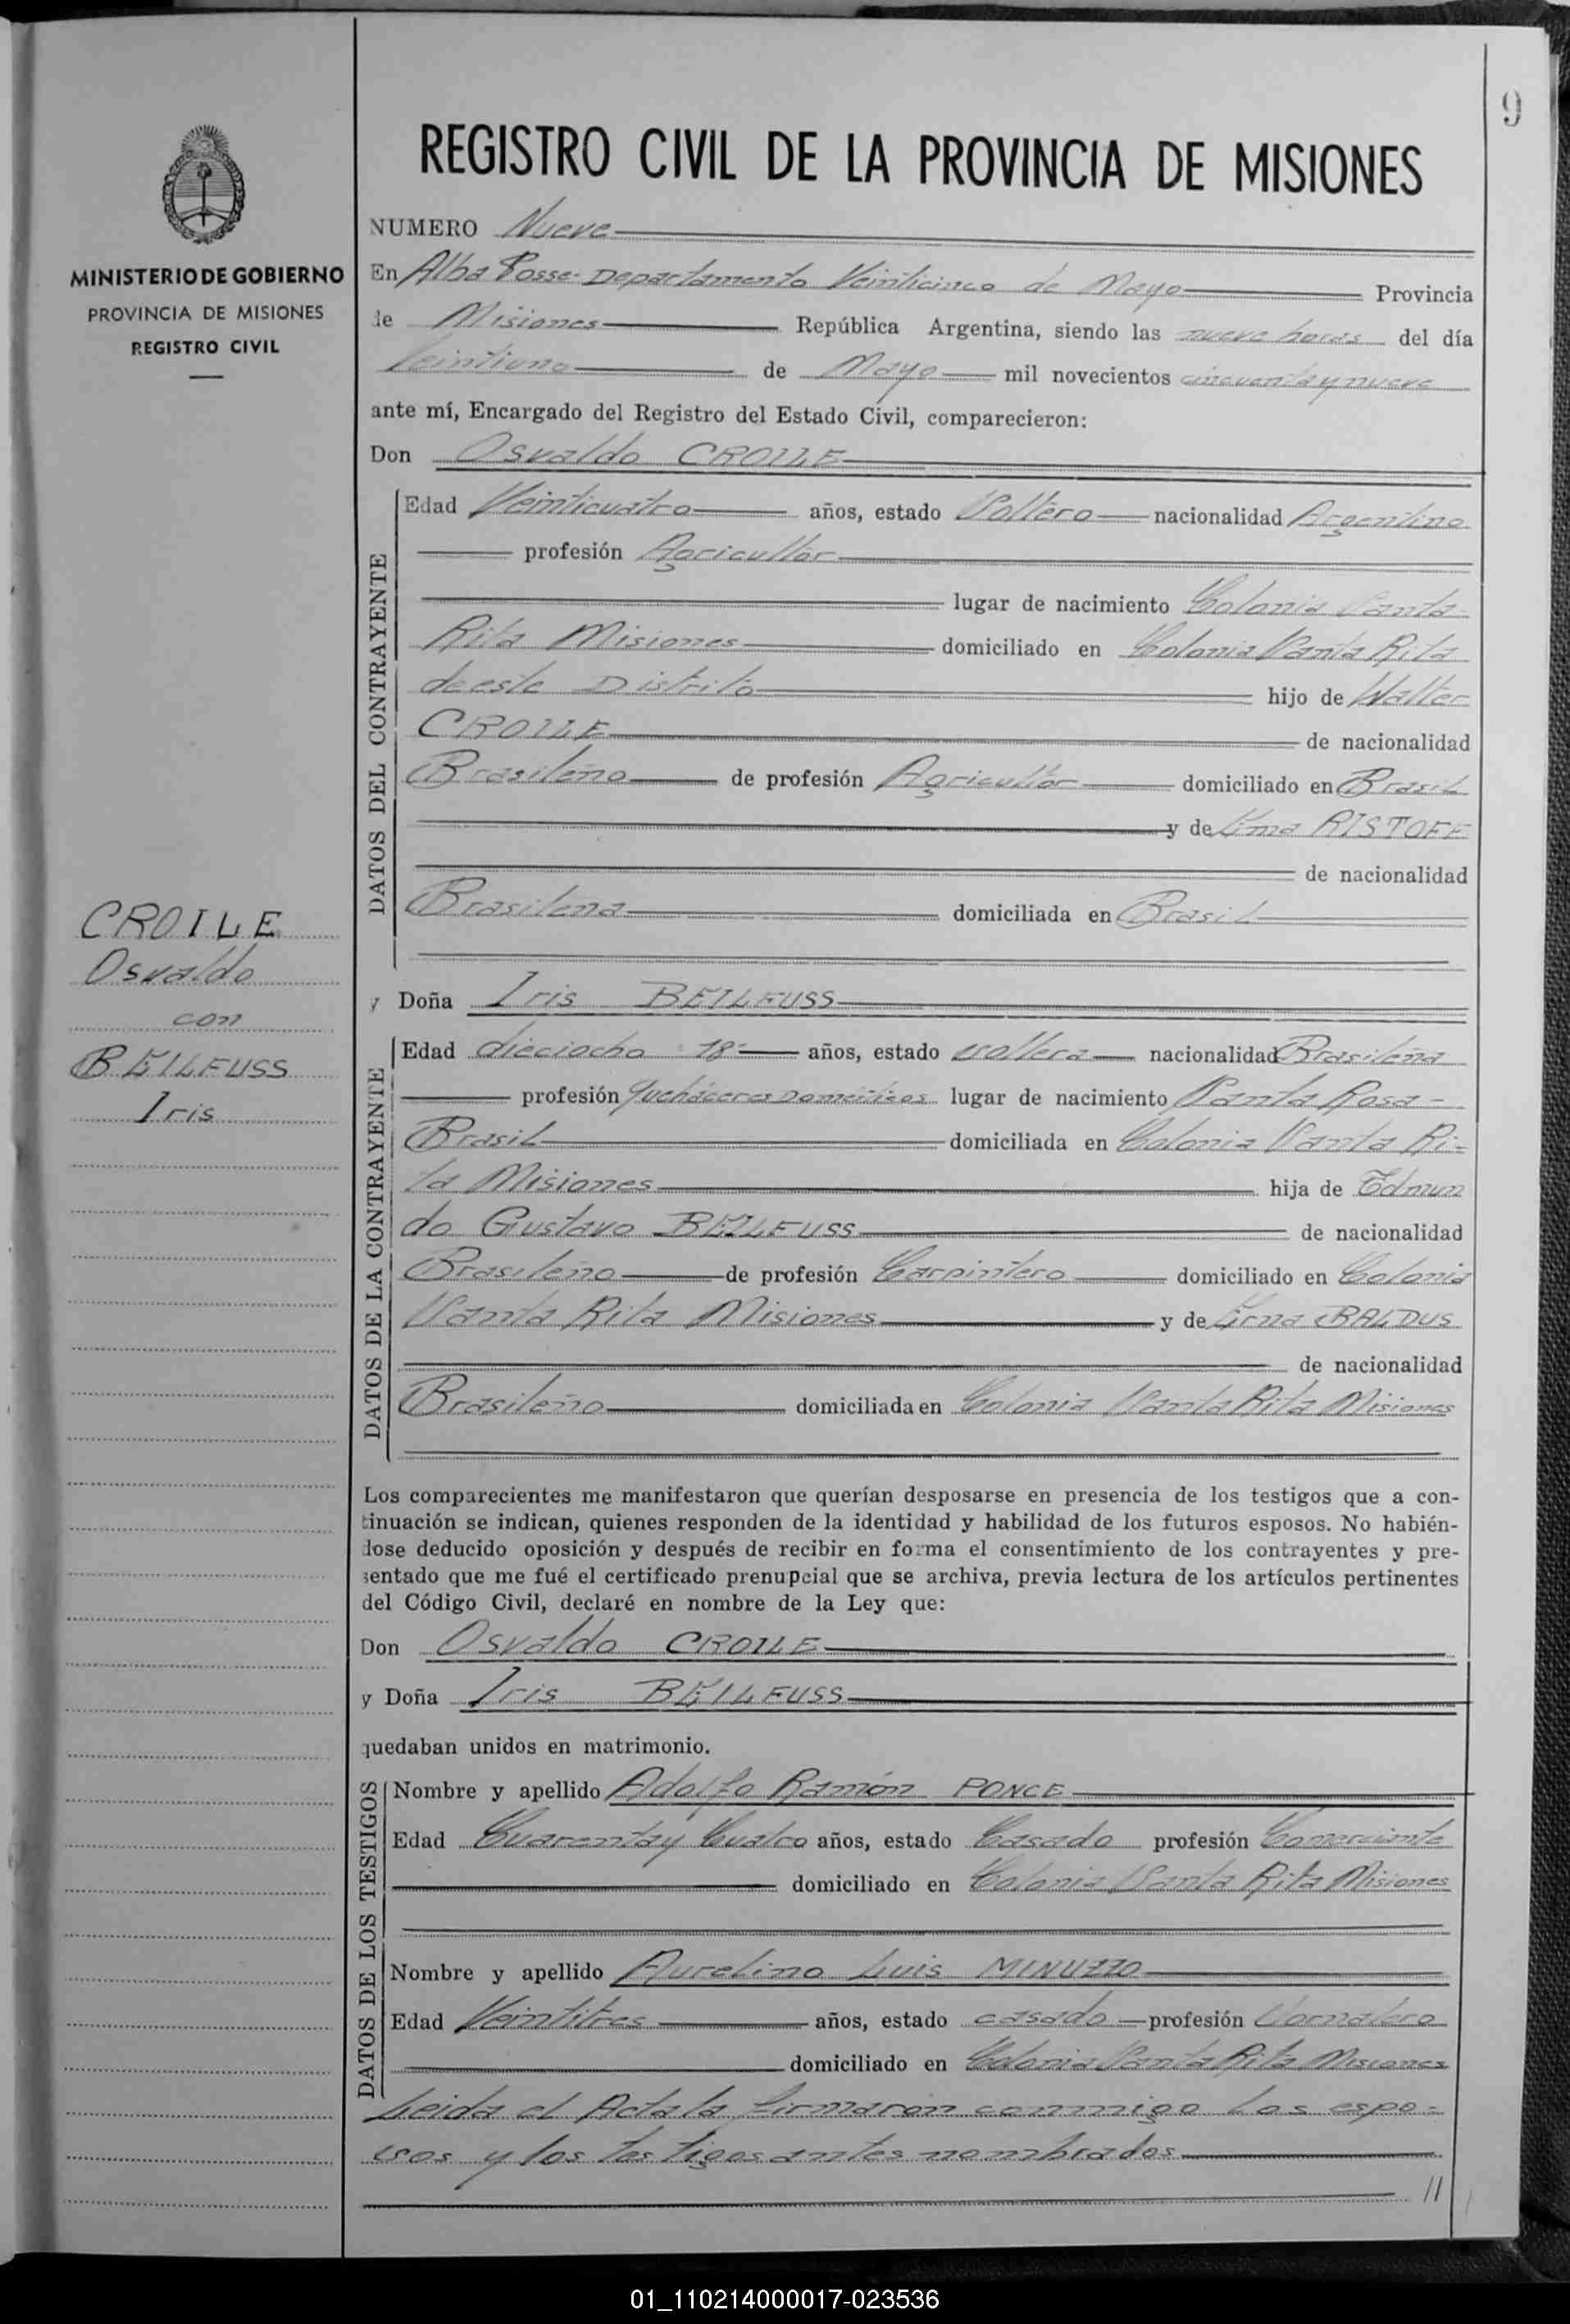 9
REGISTRO CIVIL DE LA PROVINCIA DE MISIONES
MINISTERIO DE GOBIERNO
PROVINCIA DE MISIONES
REGISTRO CIVIL
CROILE
Osvaldo
con
BEILFUSS
Iris
NUMERO Nueve
En Alba Posse- Departamento Veinticinco de Mayo Provincia
de Misiones República Argentina, siendo las nueve horas del día
Veintiuno de Mayo mil novecientos cincuenta y nueve
ante mí, Encargado del Registro del Estado Civil, comparecieron:
Don Osvaldo CROILE
DATOS DEL CONTRAYENTE
Edad Veinticuatro años, estado Soltero nacionalidad Argentina
profesión Agricultor
lugar de nacimiento Colonia Santa
Rita Misiones domiciliado en Colonia Santa Rita
de este Distrito hijo de Walter
CROILE de nacionalidad
Brasileño de profesión Agricultor domiciliado en Brasil
y de RISTOFF
de nacionalidad
Brasileña domiciliada en Brasil
y Doña Iris BEILFUSS
DATOS DE LA CONTRAYENTE
Edad dieciocho 18 años, estado soltera nacionalidad Brasileña
profesión Quehaceres Domésticos lugar de nacimiento Santa Rosa -
Brasil domiciliada en Colonia Santa Ri-
ta Misiones hija de Edmun
do Gustavo BEILFUSS de nacionalidad
Brasileño de profesión Carpintero domiciliado en Colonia
Santa Rita Misiones y de Erna BALDUS
de nacionalidad
Brasileño domiciliada en Colonia Santa Rita Misiones
Los comparecientes me manifestaron que querían desposarse en presencia de los testigos que a con-
tinuación se indican, quienes responden de la identidad y habilidad de los futuros esposos. No habién-
dose deducido oposición y después de recibir en forma el consentimiento de los contrayentes y pre-
sentado que me fué el certificado prenupcial que se archiva, previa lectura de los artículos pertinentes
del Código Civil, declaré en nombre de la Ley que:
Don Osvaldo CROILE
y Doña Iris BEILFUSS
quedaban unidos en matrimonio.
DATOS DE LOS TESTIGOS
Nombre y apellido Adolfo Ramón PONCE
Edad Cuarenta y Cuatro años, estado Casado profesión Comerciante
domiciliado en Colonia Santa Rita Misiones
Nombre y apellido Aurelino Luis MINUZZO
Edad Veintitres años, estado casado profesión Jornalero
domiciliado en Colonia Santa Rita Misiones
Leida el Acta la firmaron conmigo los espo-
sos y los testigos antes nombrados
//
01_110214000017-023536